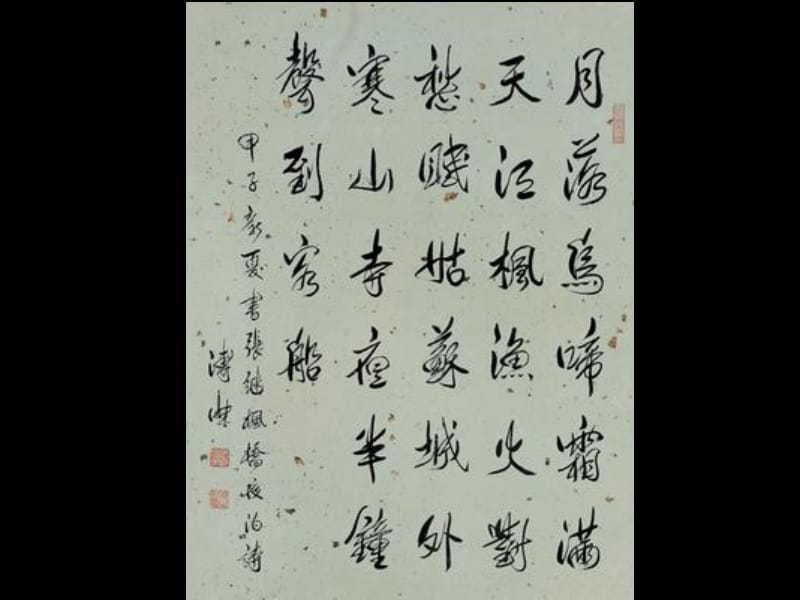 月落烏啼霜滿
天江楓漁火對
愁眠姑蘇城外
寒山寺夜半鐘
聲到客船
甲子新夏書張繼楓橋夜泊詩
溥傑